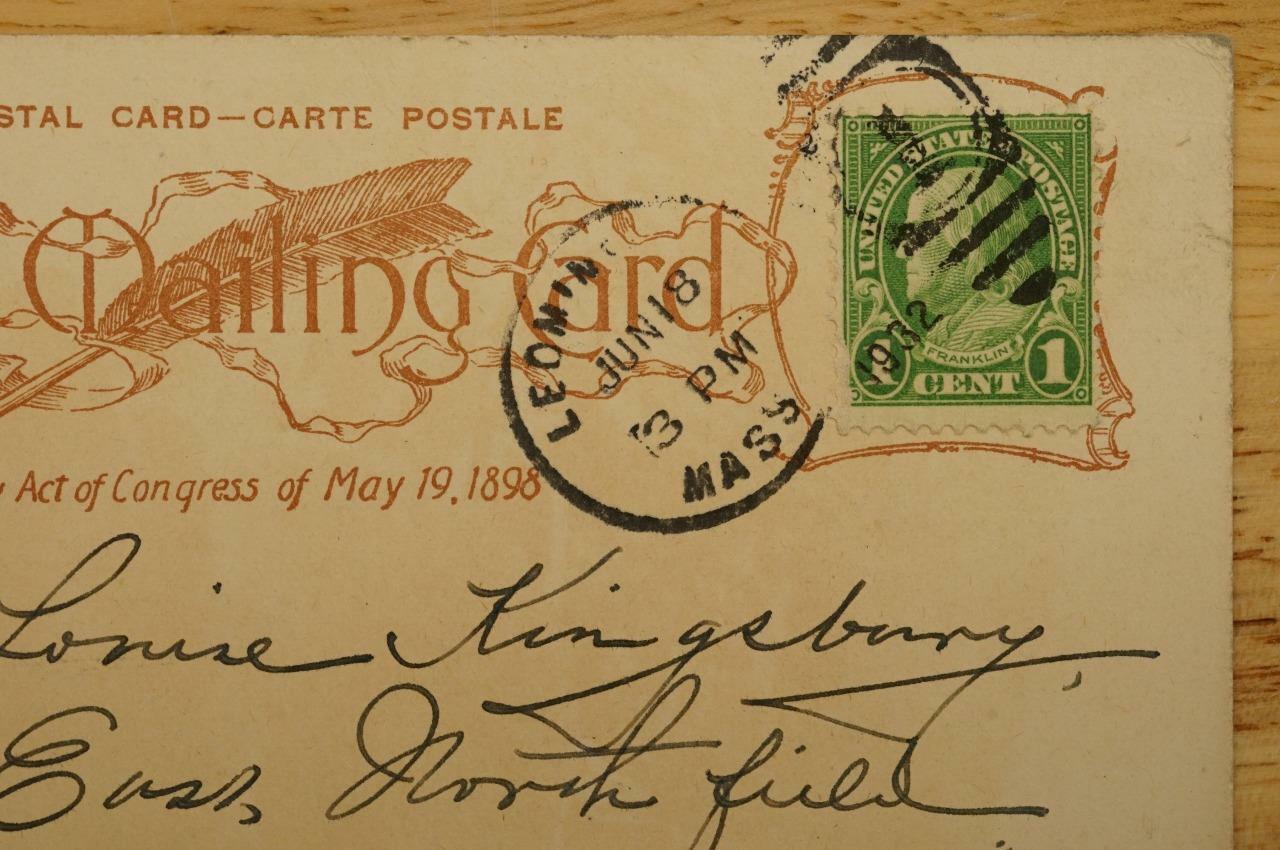 STAL CARD—CARTE POSTALE
Mailing Card
Act of Congress of May 19, 1898
LEOMIN
JUN 18
3 PM
1932
MASS
UNITED STATES POSTAGE
FRANKLIN
1 CENT 1
Louise Kingsbury,
East Northfield